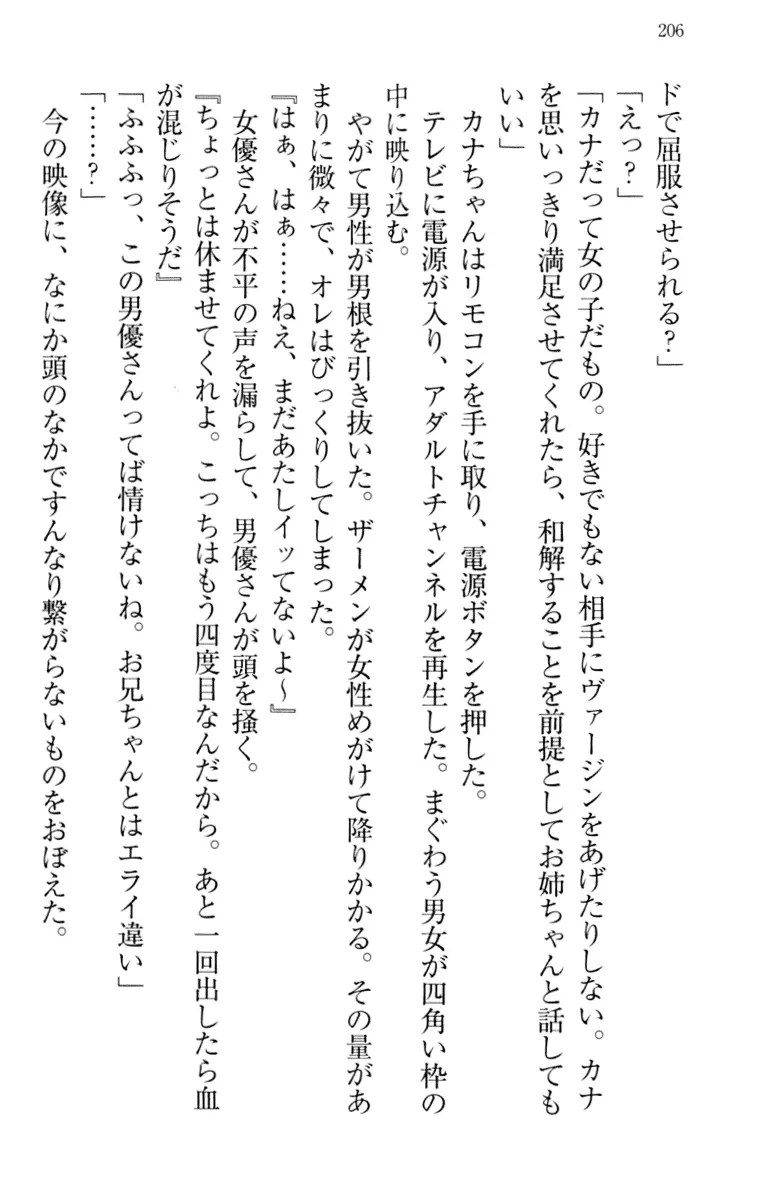 206
ドで屈服させられる?」
「えっ?」
「カナだって女の子だもの。好きでもない相手にヴァージンをあげたりしない。カナ
を思いっきり満足させてくれたら、和解することを前提としてお姉ちゃんと話しても
いい」
カナちゃんはリモコンを手に取り、電源ボタンを押した。
テレビに電源が入り、アダルトチャンネルを再生した。まぐわう男女が四角い枠の
中に映り込む。
やがて男性が男根を引き抜いた。ザーメンが女性めがけて降りかかる。その量があ
まりに微々で、オレはびっくりしてしまった。
『はぁ、はぁ……ねえ、まだあたしイッてないよ～』
女優さんが不平の声を漏らして、男優さんが頭を掻く。
『ちょっとは休ませてくれよ。こっちはもう四度目なんだから。あと一回出したら血
が混じりそうだ』
「ふふふっ、この男優さんってば情けないね。お兄ちゃんとはエライ違い」
「……?」
今の映像に、なにか頭のなかですんなり繋がらないものをおぼえた。